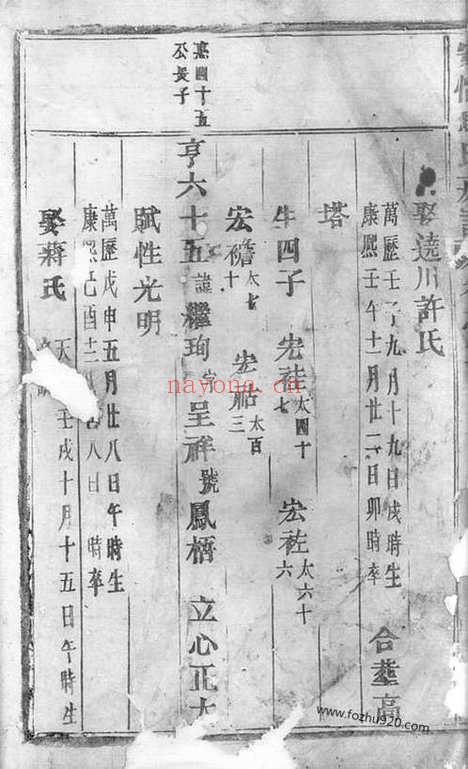 娶遶川許氏
萬歷壬子九月十九日戌時生
康熈壬午十二月廿二日卯時卒
合塟高
塔
生四子 宏祛太四十七 宏祐太六十六
宏襜太七十 宏祜太百三
熹四十五公長子
亨六十五 諱繼珣 字呈祥 號鳳栖 立心正大
賦性光明
萬歷戊申五月廿八日午時生
康熈己酉十二 八日 時卒
娶蔣氏
天 壬戌十月十五日午時生
nayona.cn
www.fozhu920.com